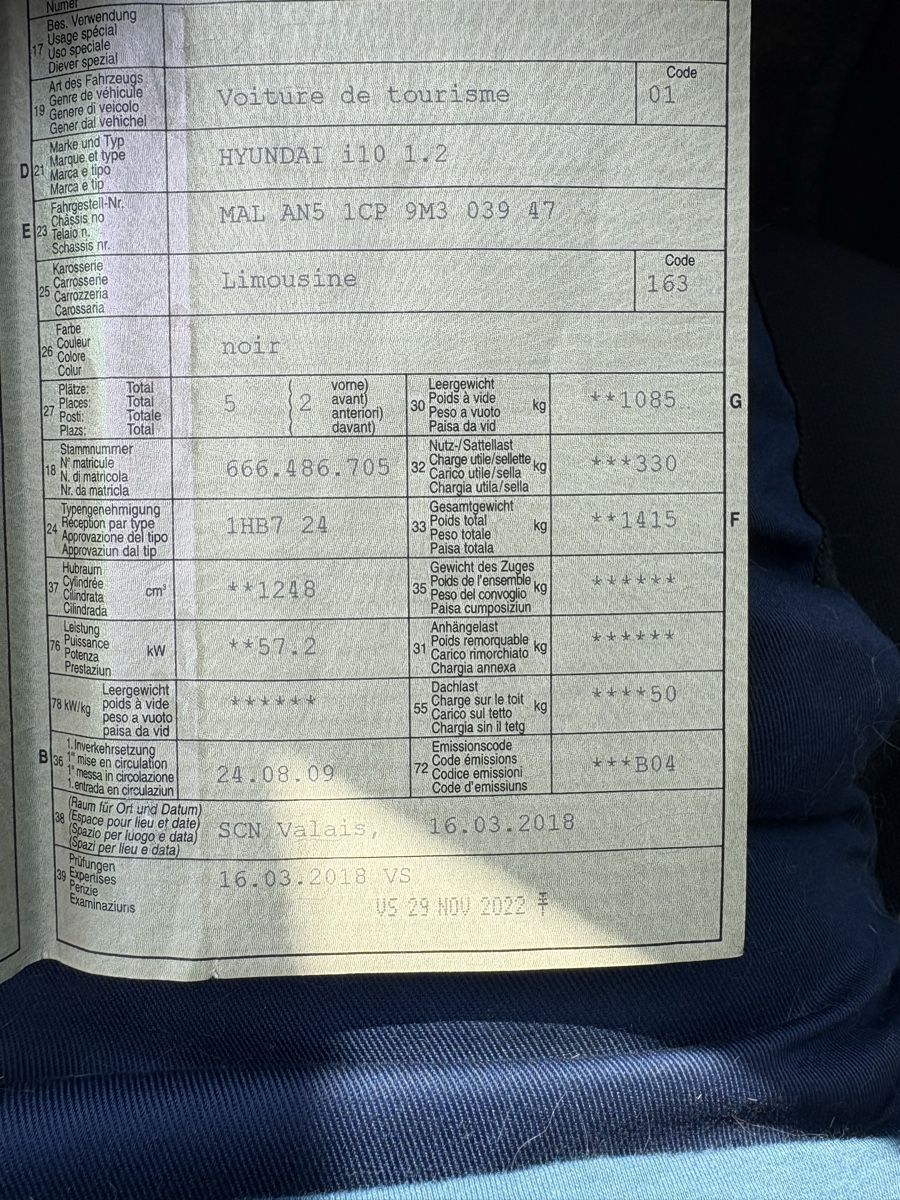 Numér
17
Bes. Verwendung
Usage spécial
Uso speciale
Diever spezial
19
Art des Fahrzeugs
Genre de véhicule
Genere di veicolo
Gener dal vehichel
Voiture de tourisme
Code
01
D
21
Marke und Typ
Marque et type
Marca e tipo
Marca e tip
HYUNDAI i10 1.2
E
23
Fahrgestell-Nr.
Châssis no
Telaio n.
Schassis nr.
MAL AN5 1CP 9M3 039 47
25
Karosserie
Carrosserie
Carrozzeria
Carossaria
Limousine
Code
163
26
Farbe
Couleur
Colore
Colur
noir
27
Plätze: Total
Places: Total
Posti: Totale
Plazs: Total
5 ( 2
vorne)
avant)
anteriori)
davant)
30
Leergewicht
Poids à vide
Peso a vuoto
Paisa da vid
kg
**1085
G
18
Stammnummer
N° matricule
N. di matricola
Nr. da matricla
666.486.705
32
Nutz-/Sattellast
Charge utile/sellette
Carico utile/sella
Chargia utila/sella
kg
***330
24
Typengenehmigung
Réception par type
Approvazione del tipo
Approvaziun dal tip
1HB7 24
33
Gesamtgewicht
Poids total
Peso totale
Paisa totala
kg
**1415
F
37
Hubraum
Cylindrée
Cilindrata
Cilindrada
cm³
**1248
35
Gewicht des Zuges
Poids de l'ensemble
Peso del convoglio
Paisa cumposiziun
kg
******
76
Leistung
Puissance
Potenza
Prestaziun
kW
**57.2
31
Anhängelast
Poids remorquable
Carico rimorchiato
Chargia annexa
kg
******
78 kW/kg
Leergewicht
poids à vide
peso a vuoto
paisa da vid
******
55
Dachlast
Charge sur le toit
Carico sul tetto
Chargia sin il tetg
kg
****50
B
36
1. Inverkehrsetzung
1re mise en circulation
1a messa in circolazione
1. entrada en circulaziun
24.08.09
72
Emissionscode
Code émissions
Codice emissioni
Code d'emissiuns
***B04
38
(Raum für Ort und Datum)
(Espace pour lieu et date)
(Spazio per luogo e data)
(Spazi per lieu e data)
SCN Valais, 16.03.2018
39
Prüfungen
Expertises
Perizie
Examinaziuns
16.03.2018 VS
VS 29 NOV 2022